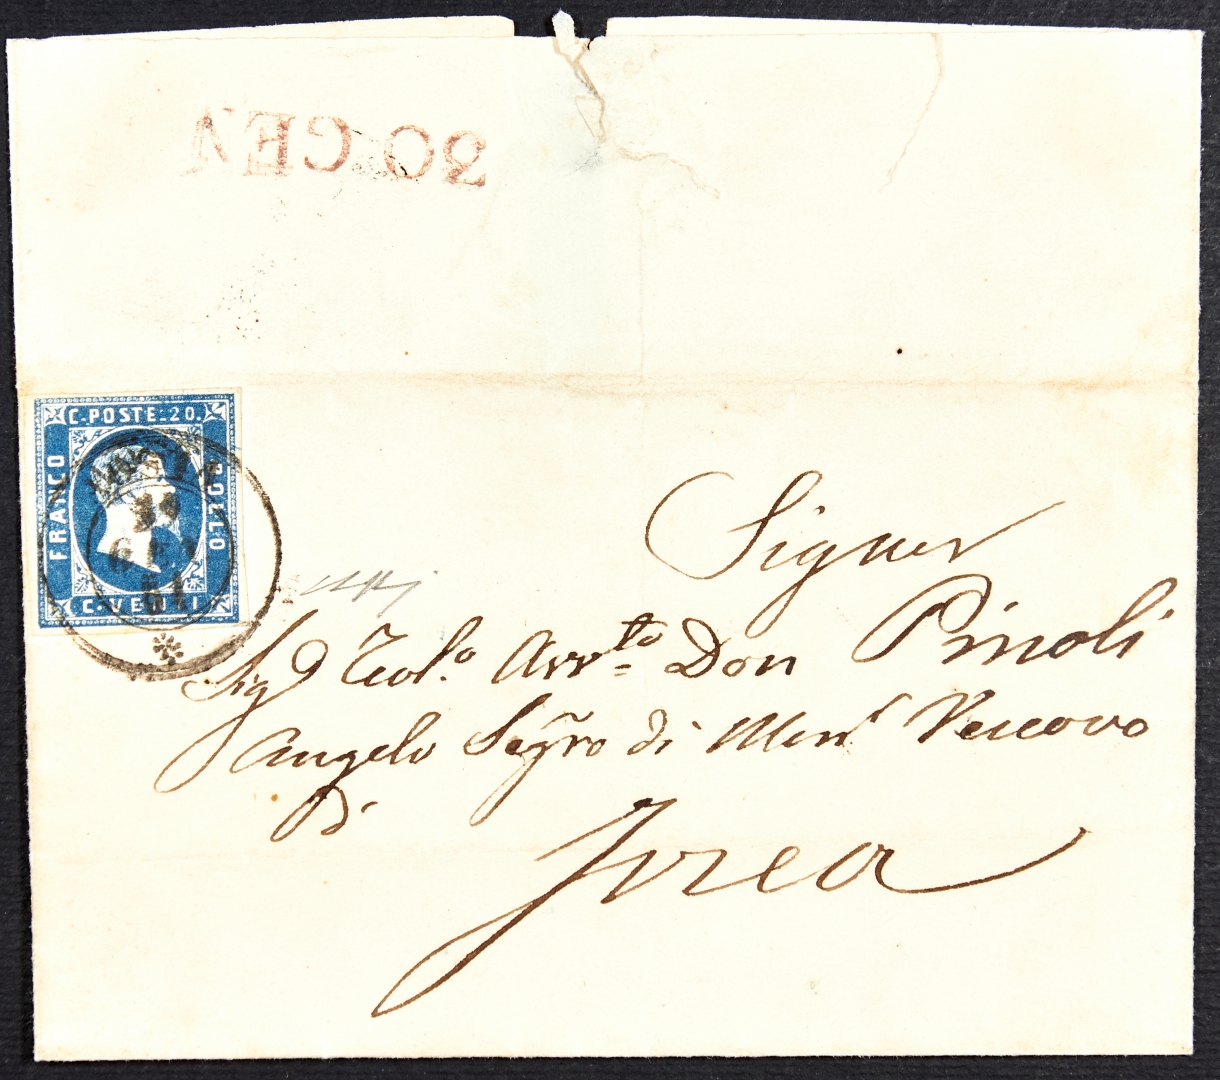 30 GEN
C. POSTE. 20.
FRANCO
BOLLO
C. VENTI
GEN
51
Signor
Sig Teol.º Avv.to Don Pinoli
Angelo Segro di Monr Vescovo
di
Ivrea